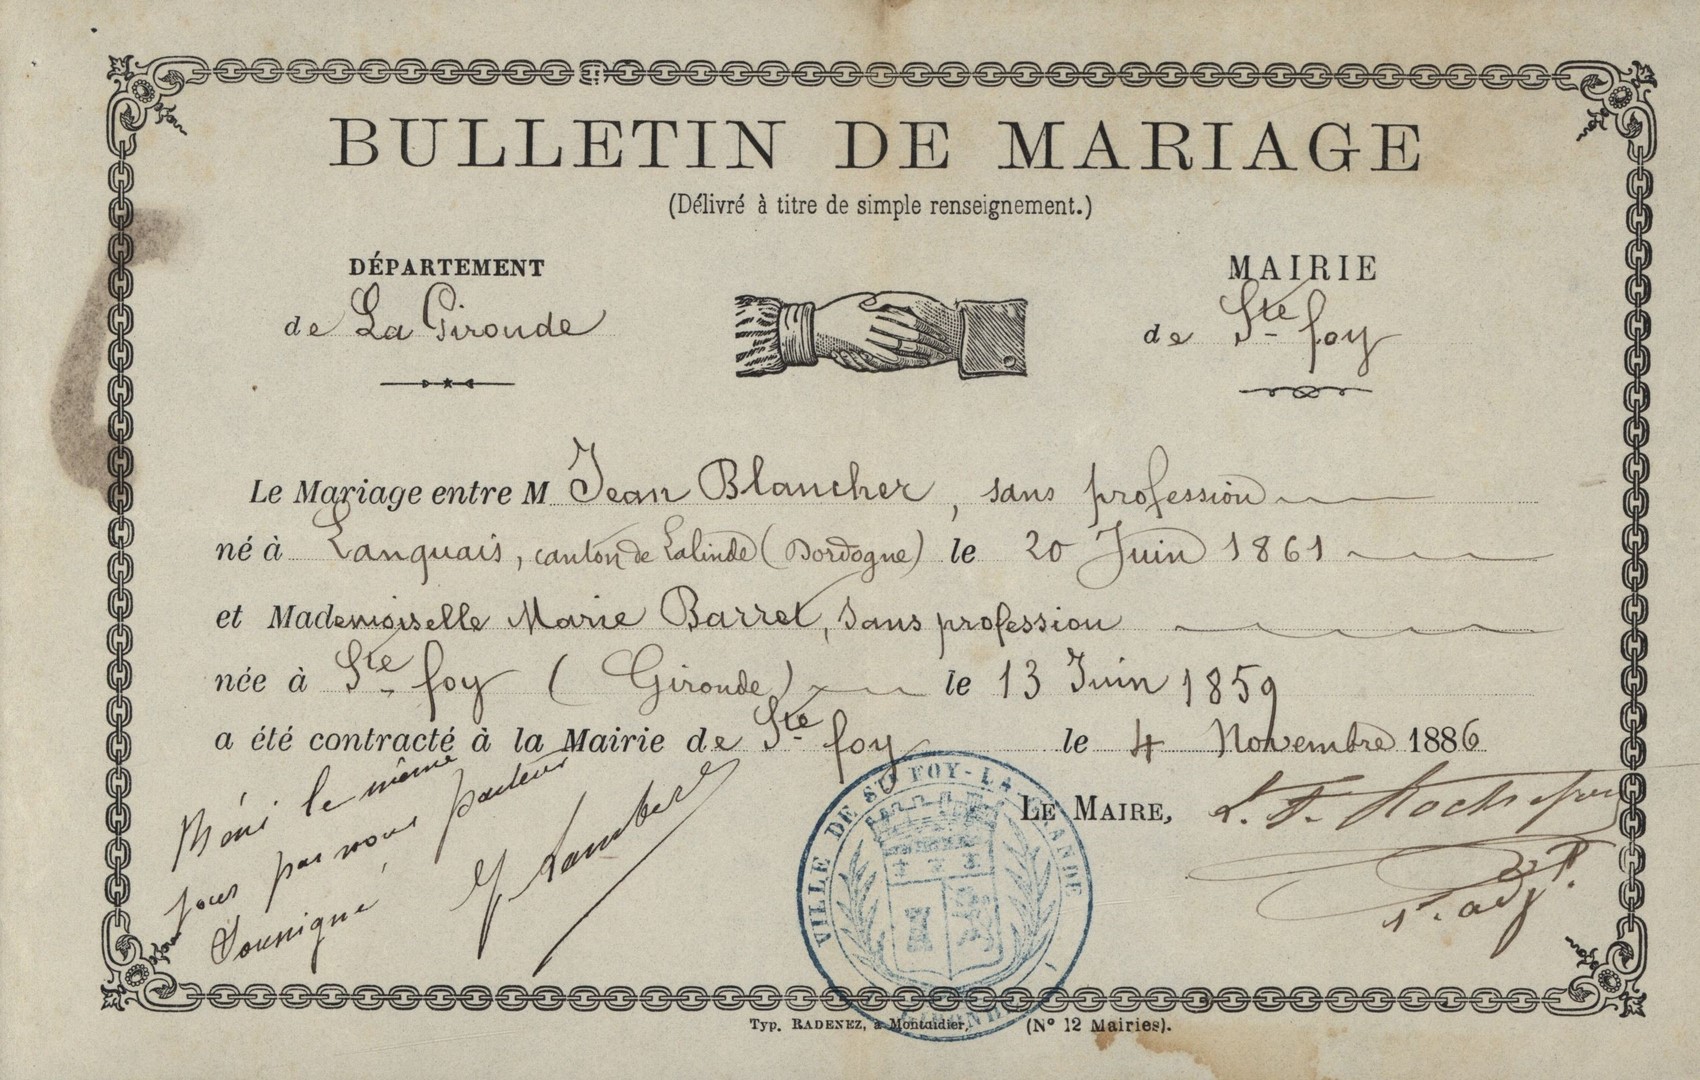 BULLETIN DE MARIAGE
(Délivré à titre de simple renseignement.)
DÉPARTEMENT
de La Gironde
MAIRIE
de Ste foy
Le Mariage entre M Jean Blancher, sans profession
né à Lanquais, canton de Lalinde (Dordogne) le 20 Juin 1861
et Mademoiselle Marie Barret, sans profession
née à Ste foy (Gironde) le 13 Juin 1859
a été contracté à la Mairie de Ste foy le 4 Novembre 1886
Béni le même
jour par nous pasteur
soussigné
Lambert
LE MAIRE,
VILLE DE STE FOY-LA-GRANDE
GIRONDE
Typ. RADENEZ, à Montdidier.
(No 12 Mairies).